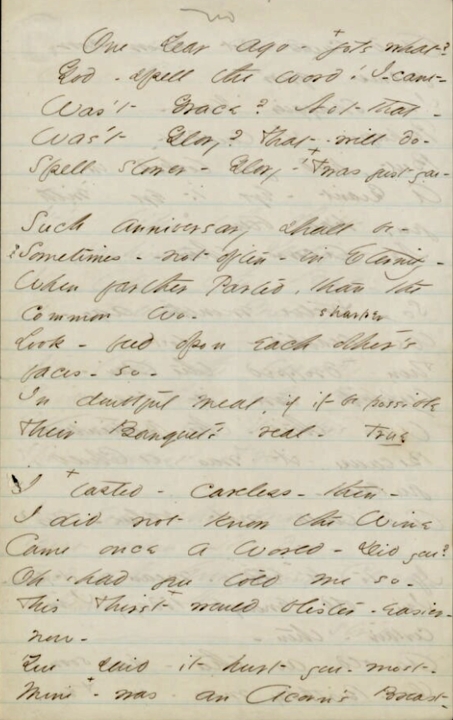 One Year ago - + jots what?
God - spell the word! I - cant -
Was't Grace? Not that -
Was't Glory? That - will do -
Spell slower - Glory - + 'Twas just you -
Such Anniversary shall be -
Sometimes - not often - in Eternity -
When farther Parted, than the
Common Wo - sharper
Look - feed upon each other's
faces - so -
In doubtful meal, if it be possible
Their Banquet's real - True
I + tasted - careless - then -
I did not know the Wine
Came once a World - Did you?
Oh, had you told me so -
This Thirst would blister - easier -
now -
You said it hurt you - most -
Mine - was an Acorn's Breast -